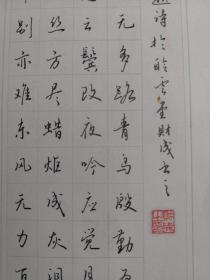 诗於聆雲堂财成书之
无多路青鸟殷勤为
云鬓改夜吟应觉月
丝方尽蜡炬成灰泪
别亦难东风无力百